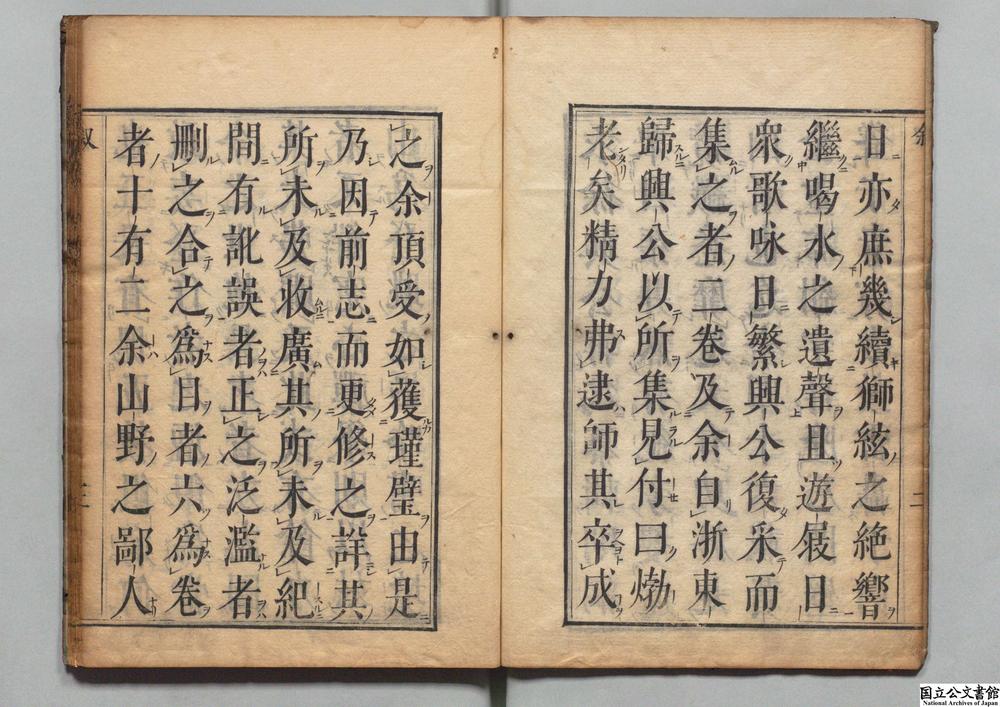 日亦庶幾續獅絃之絶響
繼喝水之遺聲且遊屐日
衆歌咏日繁興公復采而
集之者二卷及余自浙東
歸興公以所集見付曰爋
老矣精力弗逮師其卒成
之余頂受如獲瑾璧由是
乃因前志而更修之詳其
所未及收廣其所未及紀
間有訛誤者正之泛濫者
刪之合之爲目者六爲卷
者十有二余山野之鄙人
叙
二
三
国立公文書館
National Archives of Japan